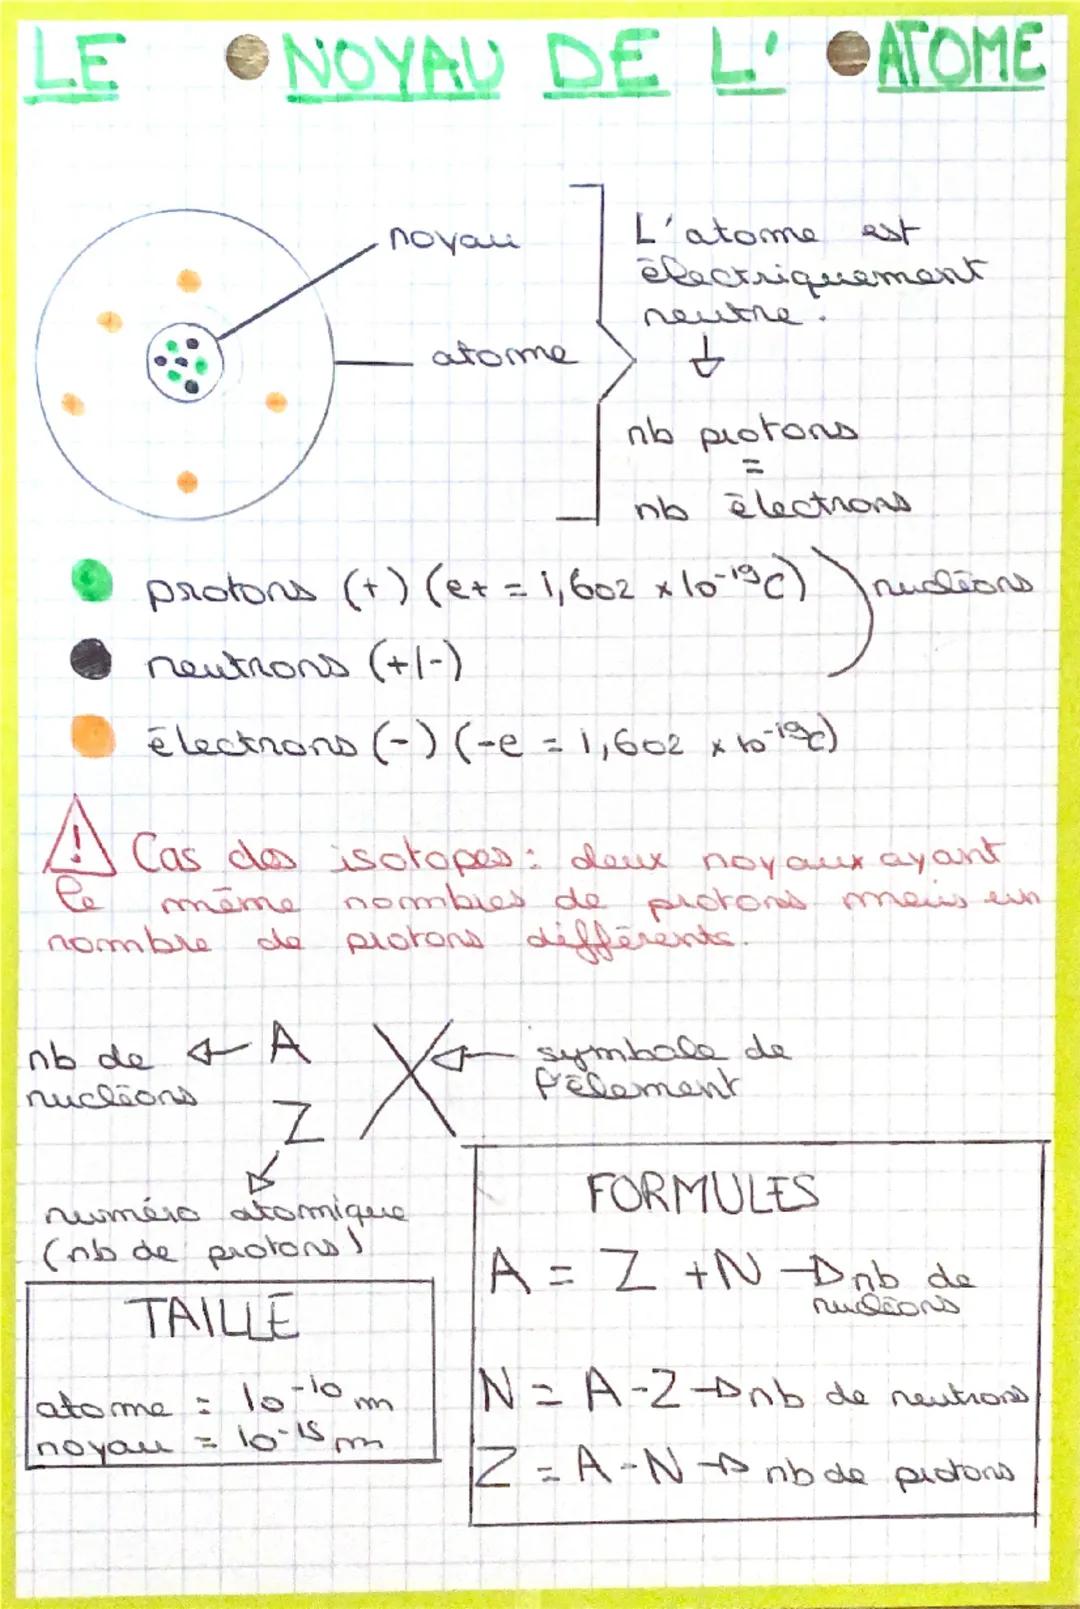 LE NOYAU DE L' ATOME
noyau
atome
L'atome est
électriquement
neutre.
nb protons
=
nb électrons
protons (+) (e+ = 1,602 x 10⁻¹⁹C)
nucléons
neutrons (+/-)
électrons (-) (-e = 1,602 x 10⁻¹⁹C)
! Cas des isotopes : deux noyaux ayant
le même nombres de protons mais un
nombre de protons différents.
nb de ← A
nucléons
X ← symbole de
l'élement
Z
numéro atomique
(nb de protons)
TAILLE
atome = 10⁻¹⁰ m
noyau = 10⁻¹⁵ m
FORMULES
A = Z + N → nb de
nucléons
N = A - Z → nb de neutrons
Z = A - N → nb de protons